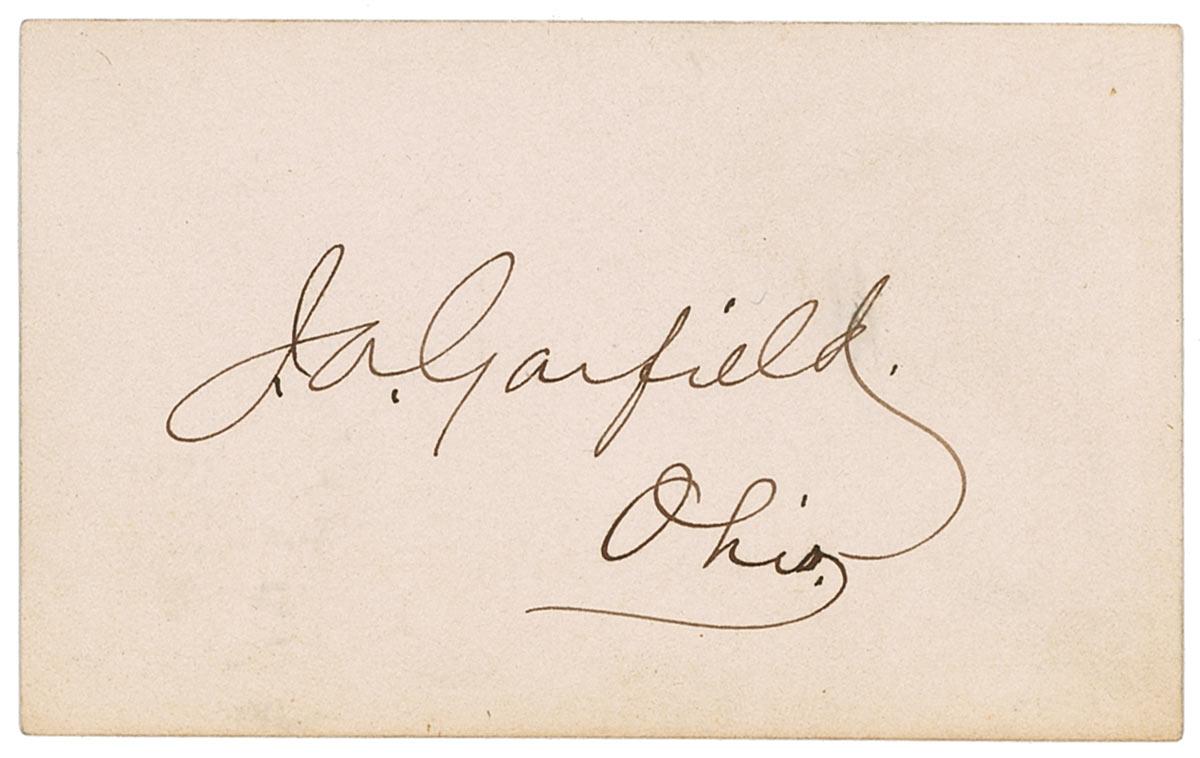 J. A. Garfield.
Ohio.